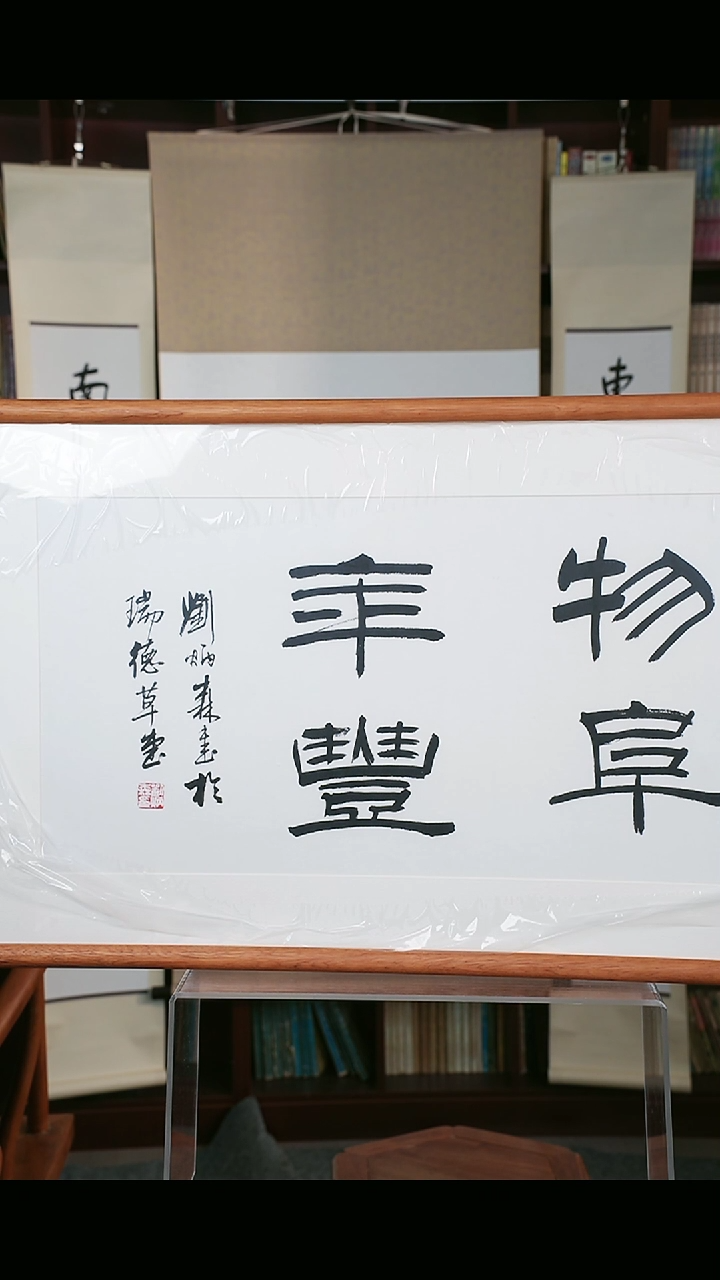 物阜
年豐
劉炳森書於
瑞德草堂
東
南